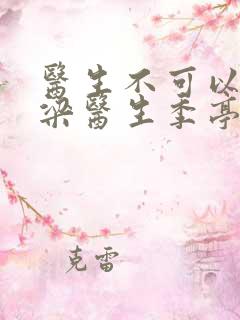 醫生不可以
梁醫生季亭
克雷